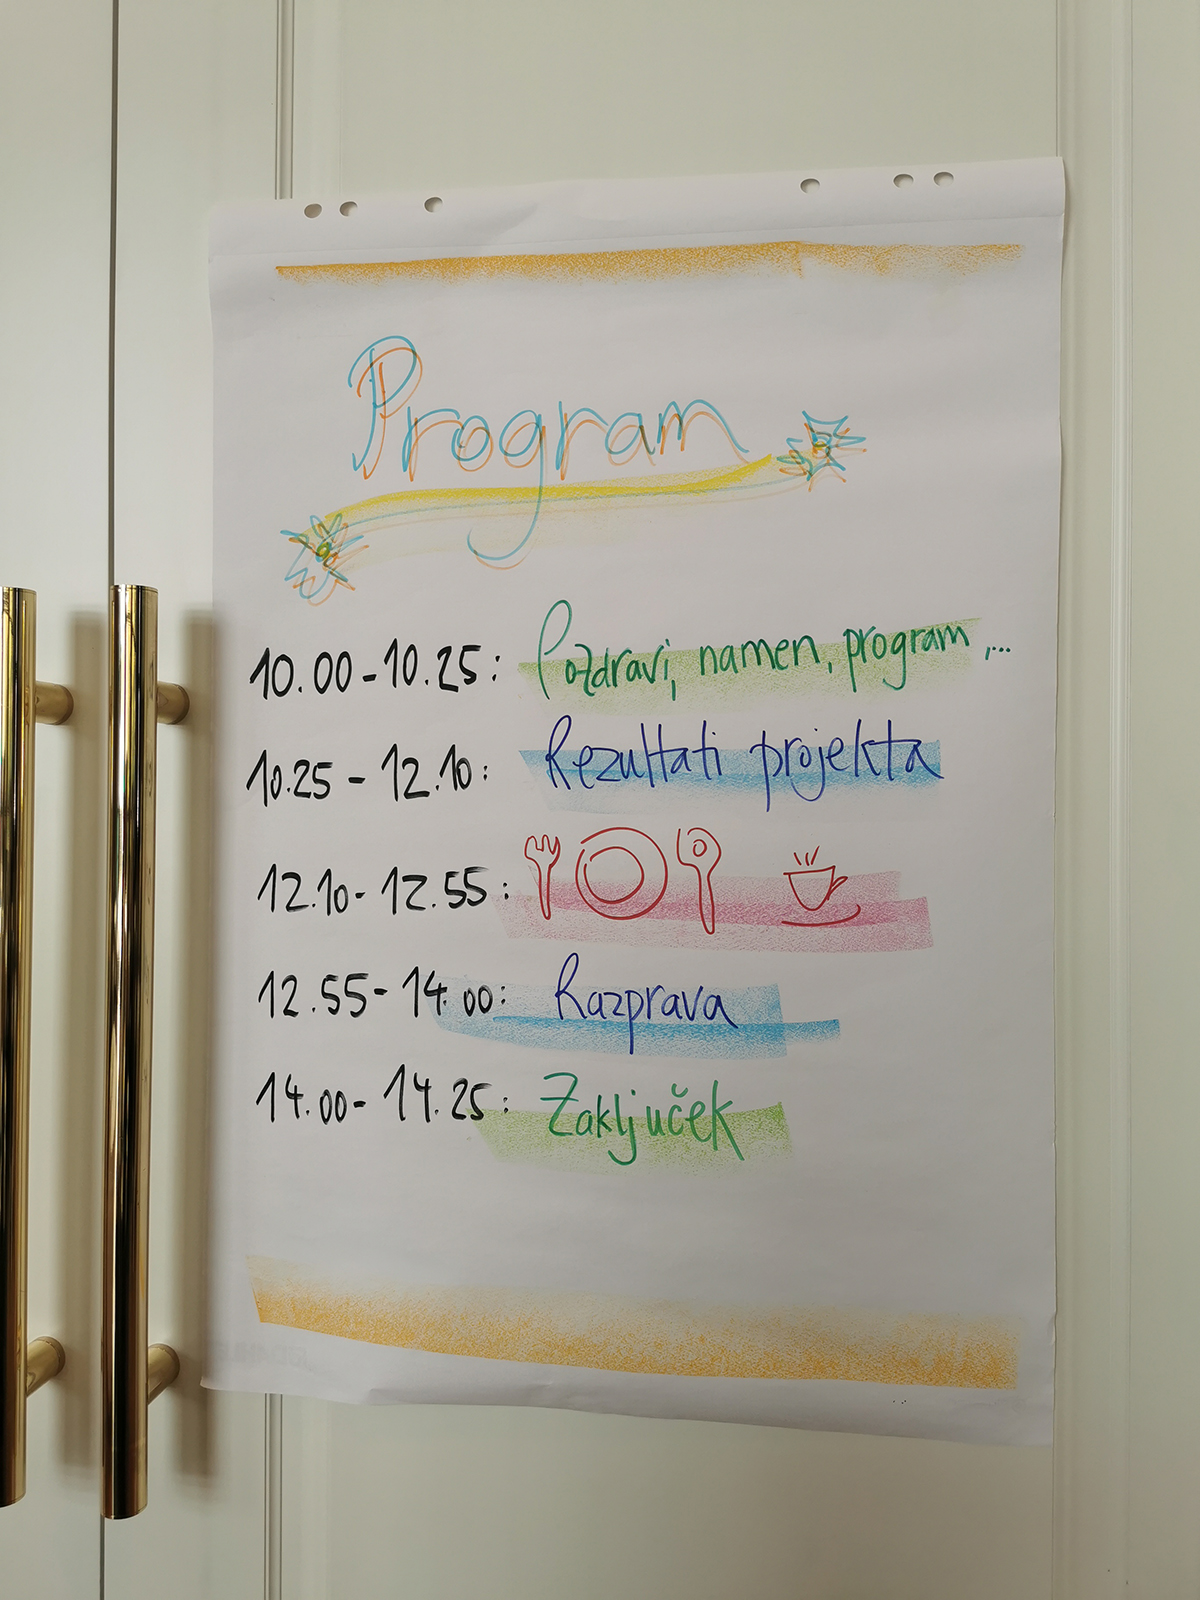 Program
10.00 - 10.25: Pozdravi, namen, program,...
10.25 - 12.10: Rezultati projekta
12.10 - 12.55:
12.55 - 14.00: Razprava
14.00 - 14.25: Zaključek